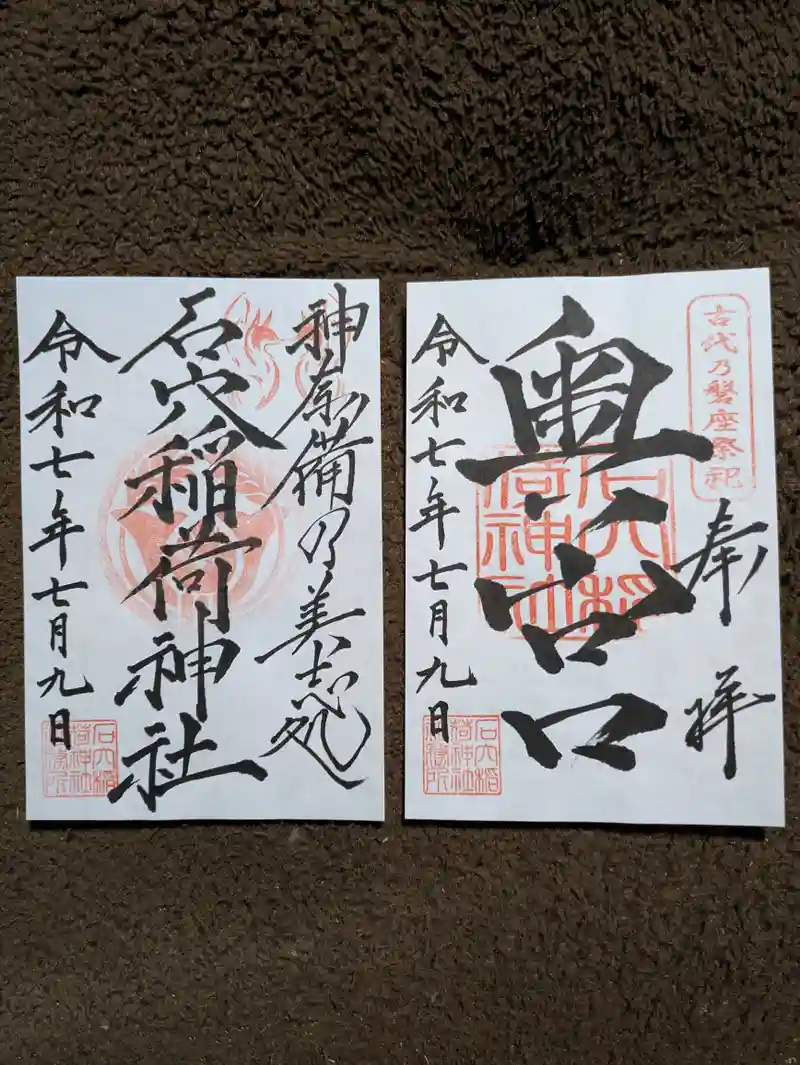 神奈備乃美志処
石穴稲荷神社
令和七年七月九日
石穴稲
荷神社
古代乃磐座祭祀
奉拝
奥宮
石穴稲
荷神社
令和七年七月九日
石穴稲
荷神社